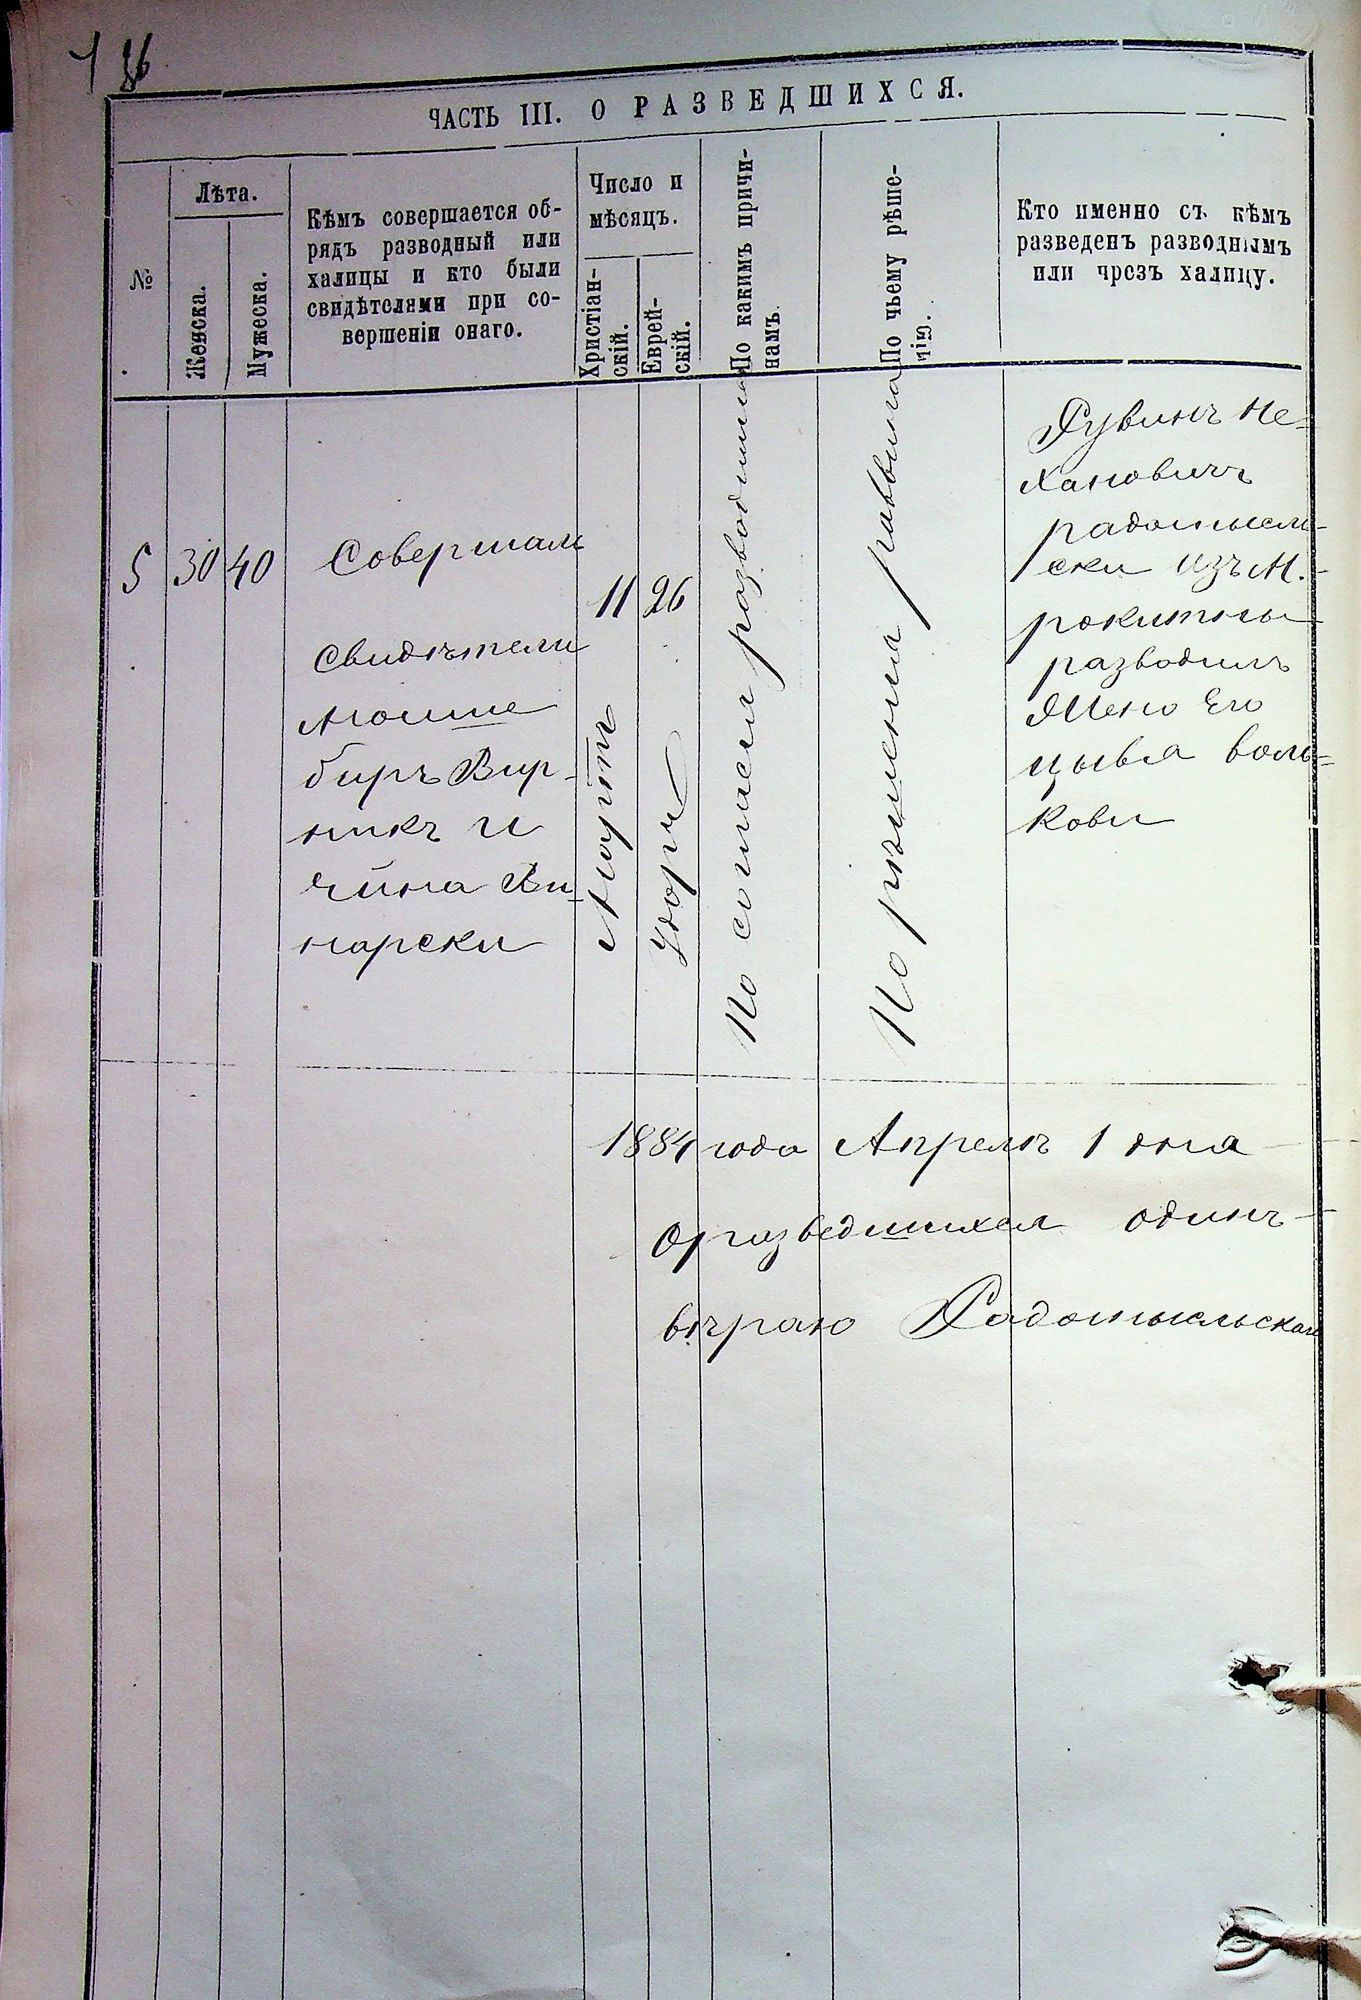 86
ЧАСТЬ III. О РАЗВЕДШИХСЯ.
№
Лѣта.
Женска.
Мужеска.
Кѣмъ совершается об-
рядъ разводный или
халицы и кто были
свидѣтелями при со-
вершеніи онаго.
Число и
мѣсяцъ.
Христіан-
скій.
Еврей-
скій.
По какимъ причи-
намъ.
По чьему рѣше-
нію.
Кто именно съ кѣмъ
разведенъ разводнымъ
или чрезъ халицу.
5
30
40
Совершал
Свидѣтели
Мошше
биръ Вир-
никъ и
Ви-
нарски
11
Мартъ
26
Удоръ
По согласия разводится
По рѣшения раввина
Рувинъ Не-
хановичъ
радомысль-
ски изъ М.
рокитны
разводилъ
Жено его
цывя воль-
кови
1884 года Апрель 1 дня
оразведшихся одинъ
вѣраю Радомысльский